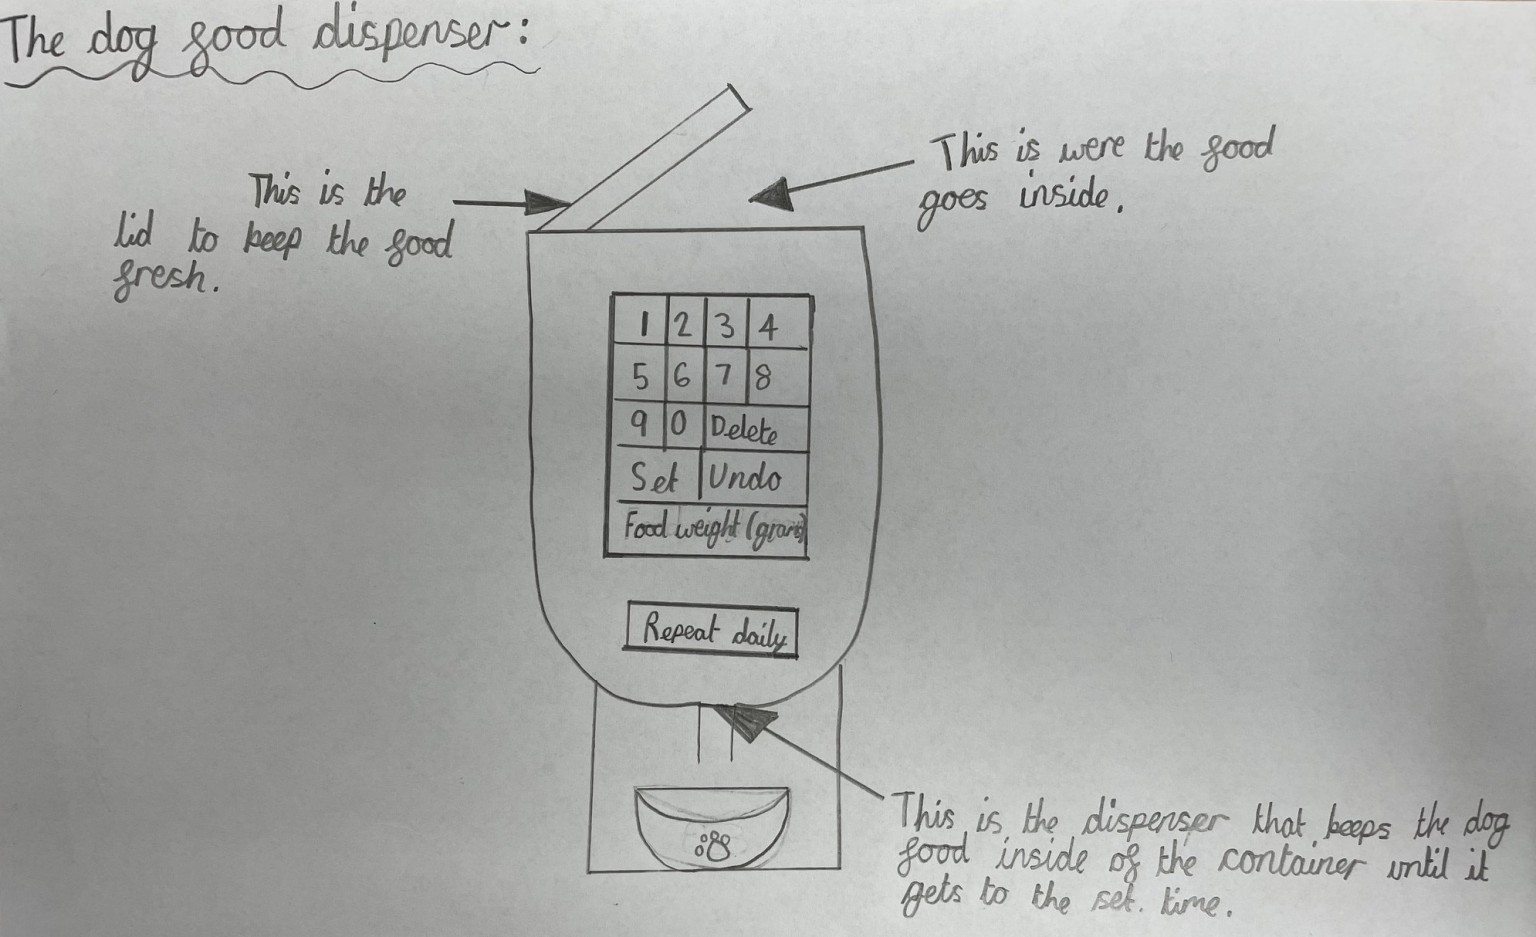 The dog food dispenser:
This is the
lid to keep the food
fresh.
This is were the food
goes inside.
1 2 3 4
5 6 7 8
9 0 Delete
Set Undo
Food weight (grams)
Repeat daily
This is the dispenser that keeps the dog
food inside of the container until it
gets to the set. time.